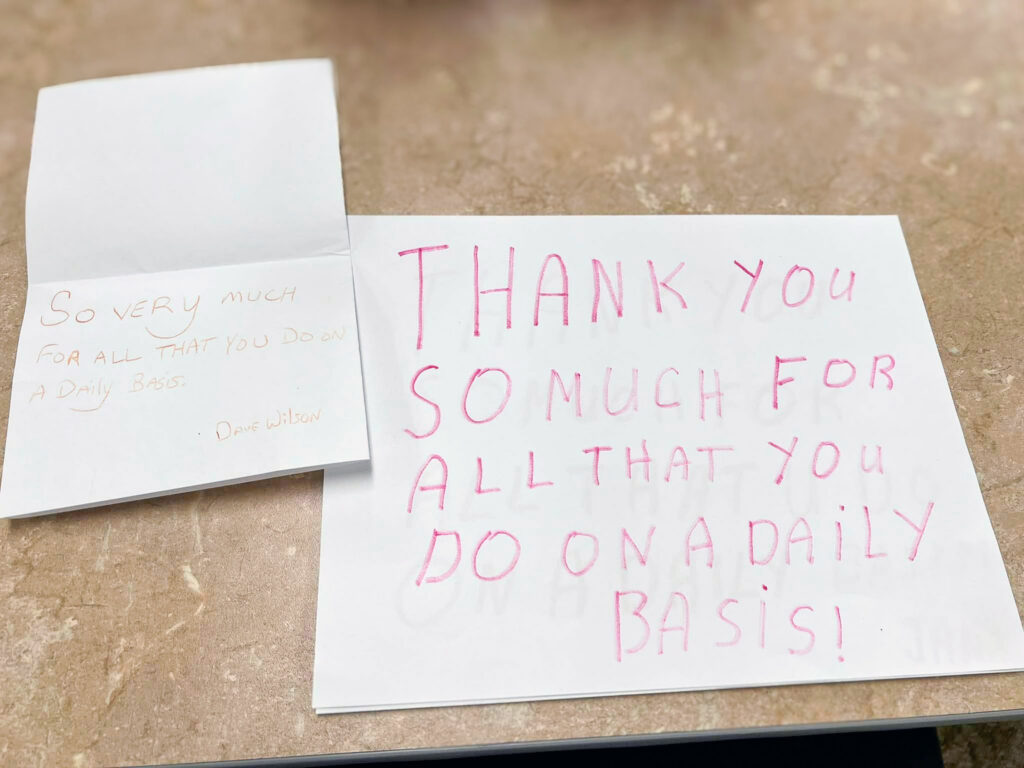 So VERY MUCH
FOR ALL THAT YOU DO ON
A DAily BASIS.
DAVE WilSON
THANK YOU
SO MUCH FOR
ALL THAT YOU
DO ON A DAiLY
BASiS!